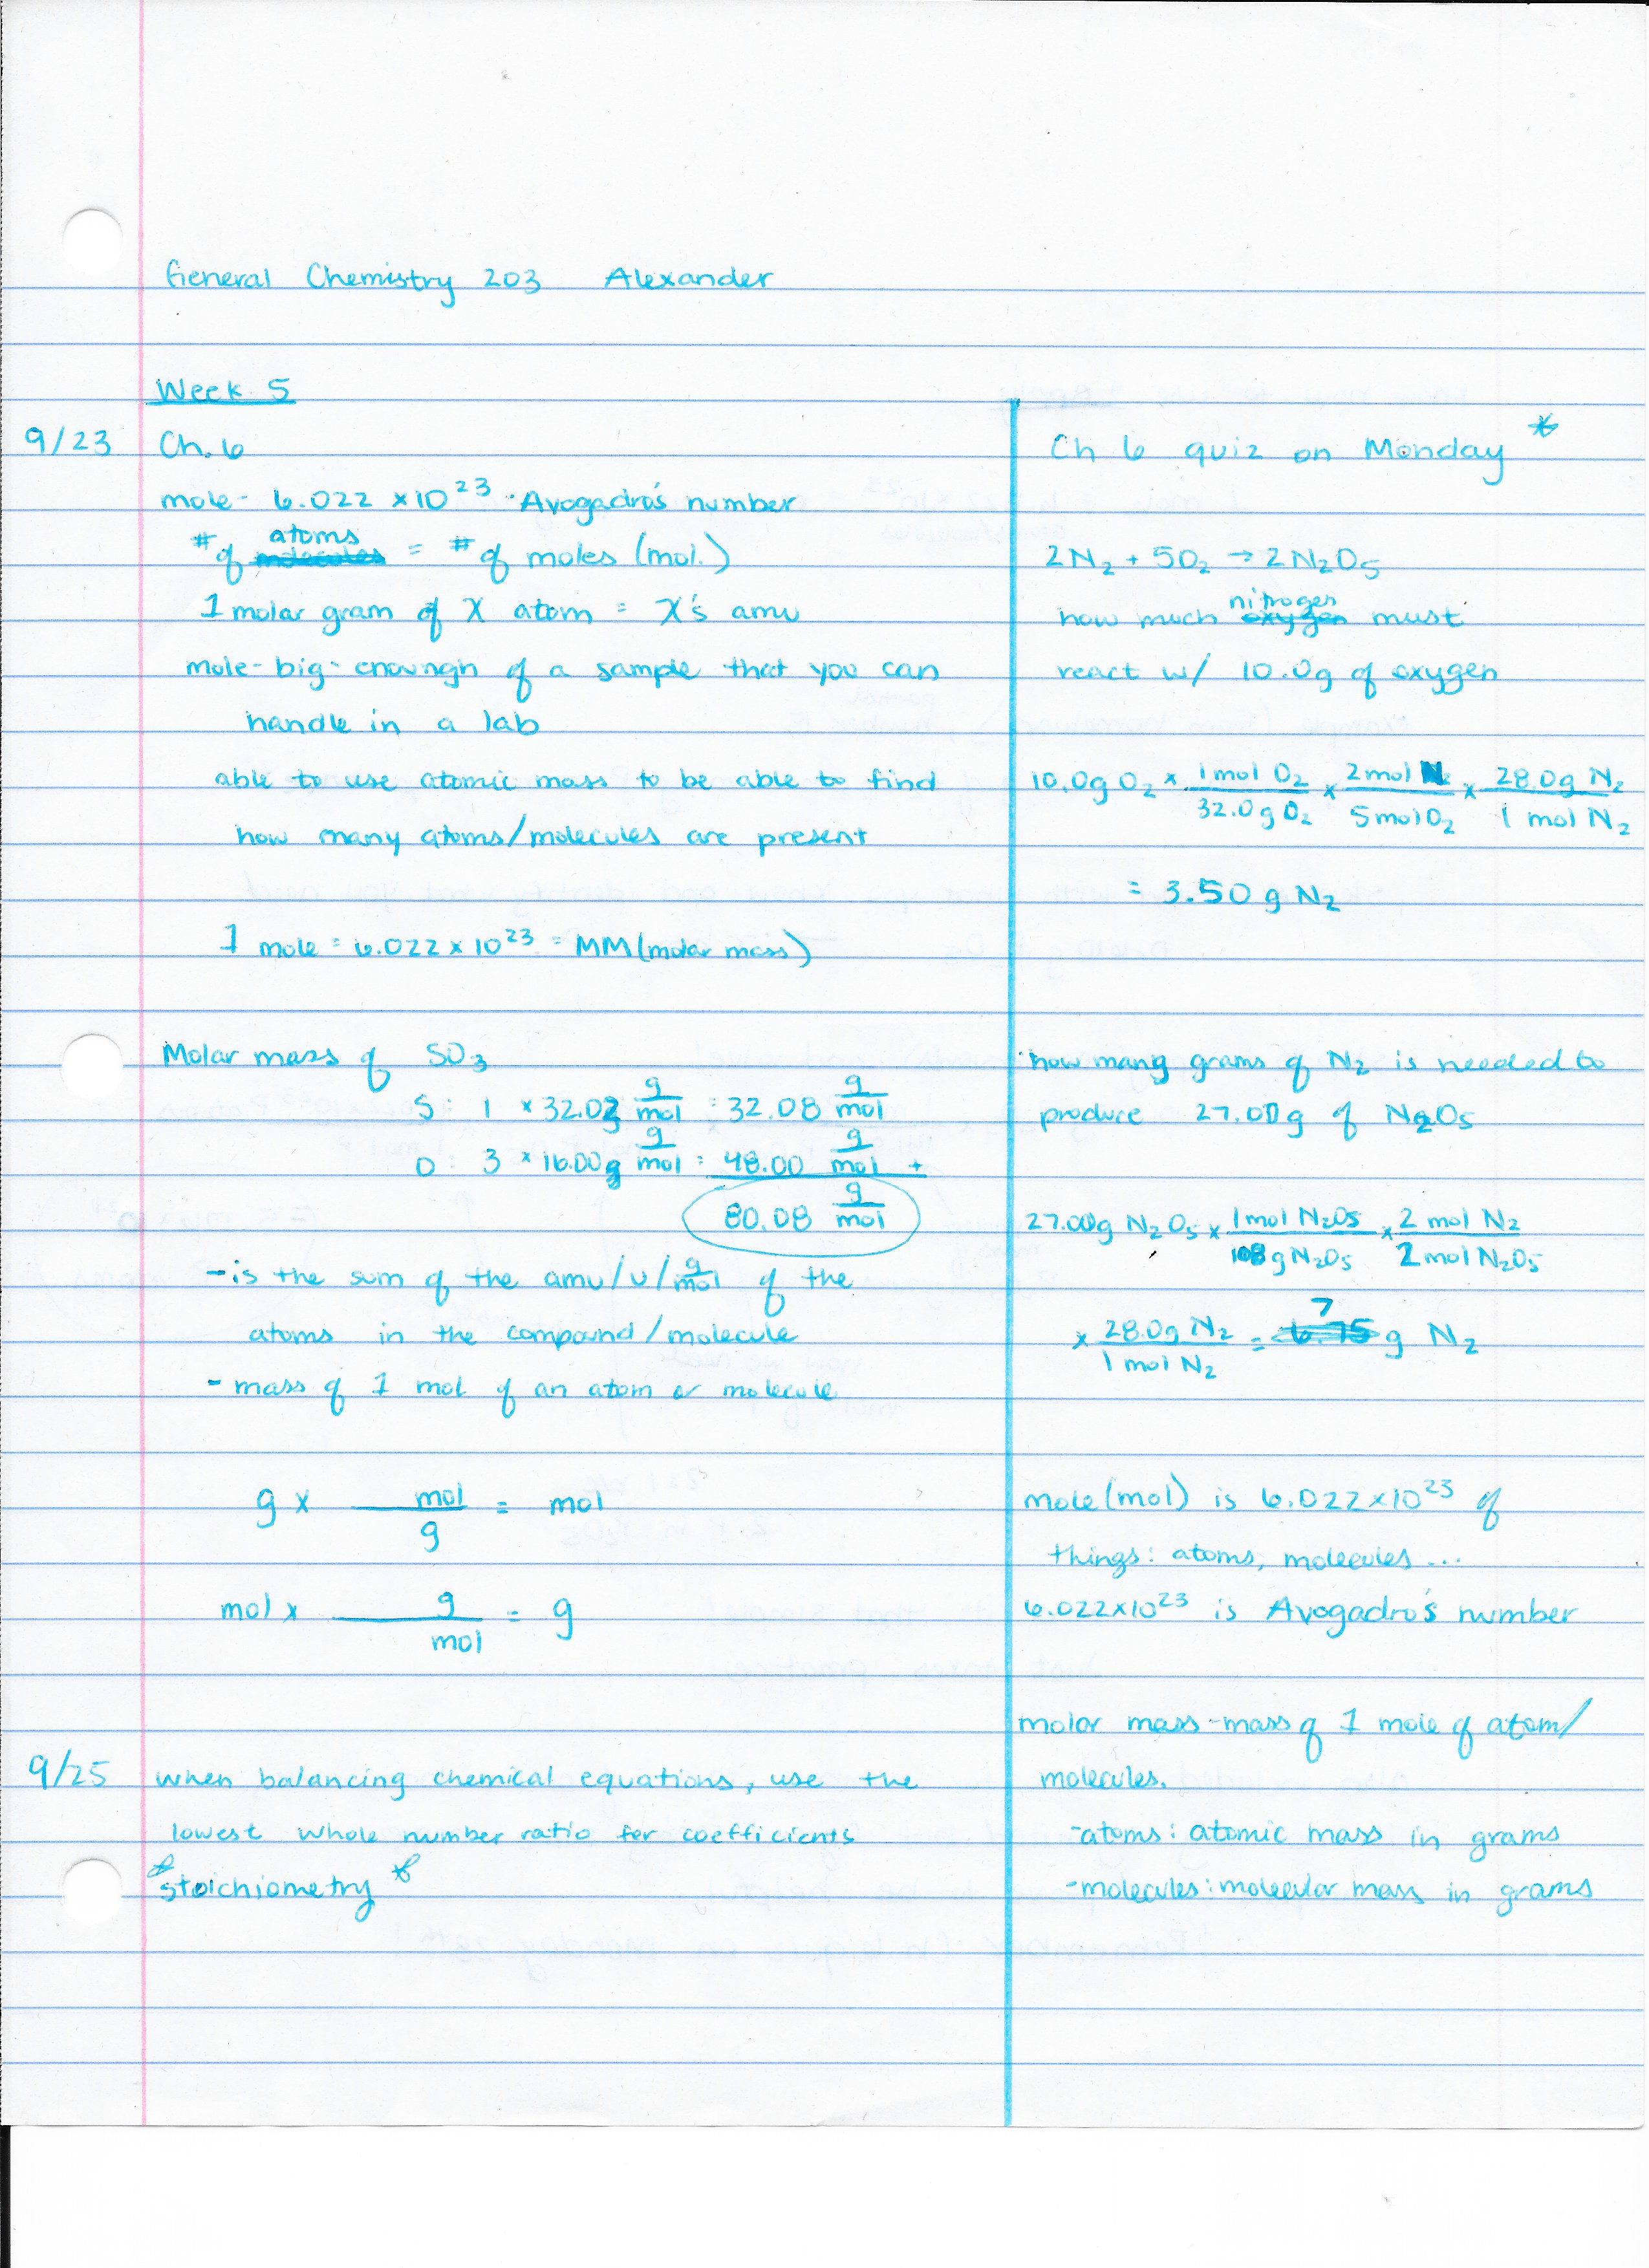 General Chemistry 203 Alexander
Week 5
9/23 Ch. 6
mole - 6.022 × 10²³ · Avogadro's number
# of atoms = # of moles (mol.)
1 molar gram of X atom = X's amu
mole - big enoungh of a sample that you can
handle in a lab
able to use atomic mass to be able to find
how many atoms/molecules are present
1 mole = 6.022 × 10²³ = MM (molar mass)
Molar mass of SO₃
S: 1 × 32.08 g/mol = 32.08 g/mol
O: 3 × 16.00g g/mol = 48.00 g/mol +
80.08 g/mol
- is the sum of the amu/u/g/mol of the
atoms in the compound/molecule
- mass of 1 mol of an atom or molecule
g × mol/g = mol
mol × g/mol = g
9/25 when balancing chemical equations, use the
lowest whole number ratio for coefficients
*stoichiometry*
Ch 6 quiz on Monday *
2N₂ + 5O₂ → 2N₂O₅
how much nitrogen must
react w/ 10.0g of oxygen
10.0g O₂ × 1 mol O₂/32.0g O₂ × 2 mol N₂/5 mol O₂ × 28.0g N₂/1 mol N₂
= 3.50 g N₂
how many grams of N₂ is needed to
produce 27.00g of N₂O₅
27.00g N₂O₅ × 1 mol N₂O₅/108 g N₂O₅ × 2 mol N₂/2 mol N₂O₅
× 28.0g N₂/1 mol N₂ = 7 g N₂
mole (mol) is 6.022×10²³ of
things: atoms, molecules...
6.022×10²³ is Avogadro's number
molar mass - mass of 1 mole of atom/
molecules.
- atoms: atomic mass in grams
- molecules: molecular mass in grams